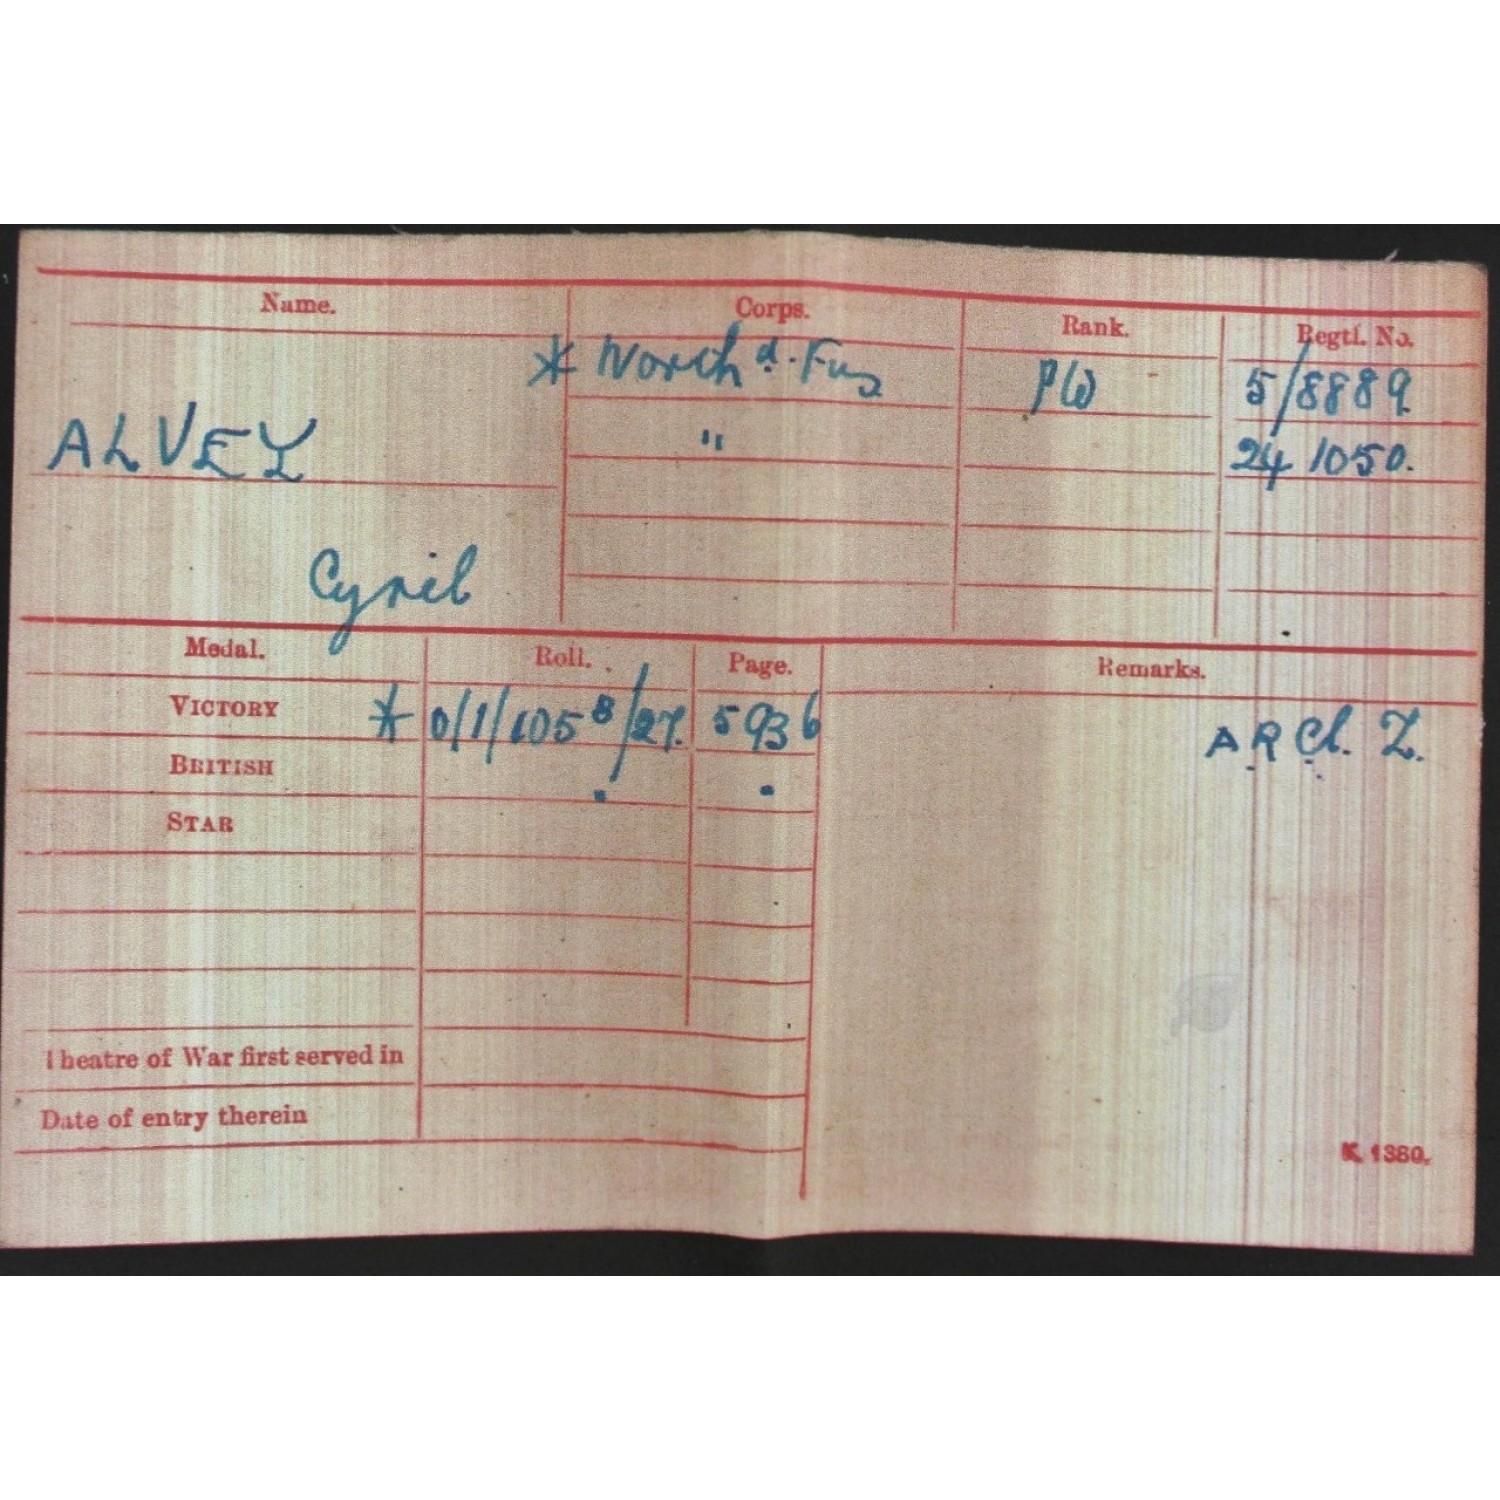 Name. Corps. Rank. Regtl. No.
* North'd. Fus PW 5/8889
ALVEY " 24 1050.
Cyril
Medal. Roll. Page. Remarks.
VICTORY * O/1/105 B/27. 5936 A.R Cl. Z.
BRITISH
STAR
Theatre of War first served in
Date of entry therein
K. 1380.